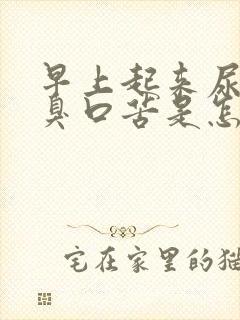 早上起来尿
臭口苦是怎
宅在家里的猫